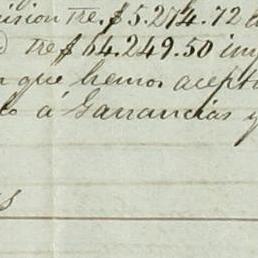 ision Tre. $ 5.274.72 a
Tre $ 64.249.50 imp
que hemos acepta
o á Ganancias y
s